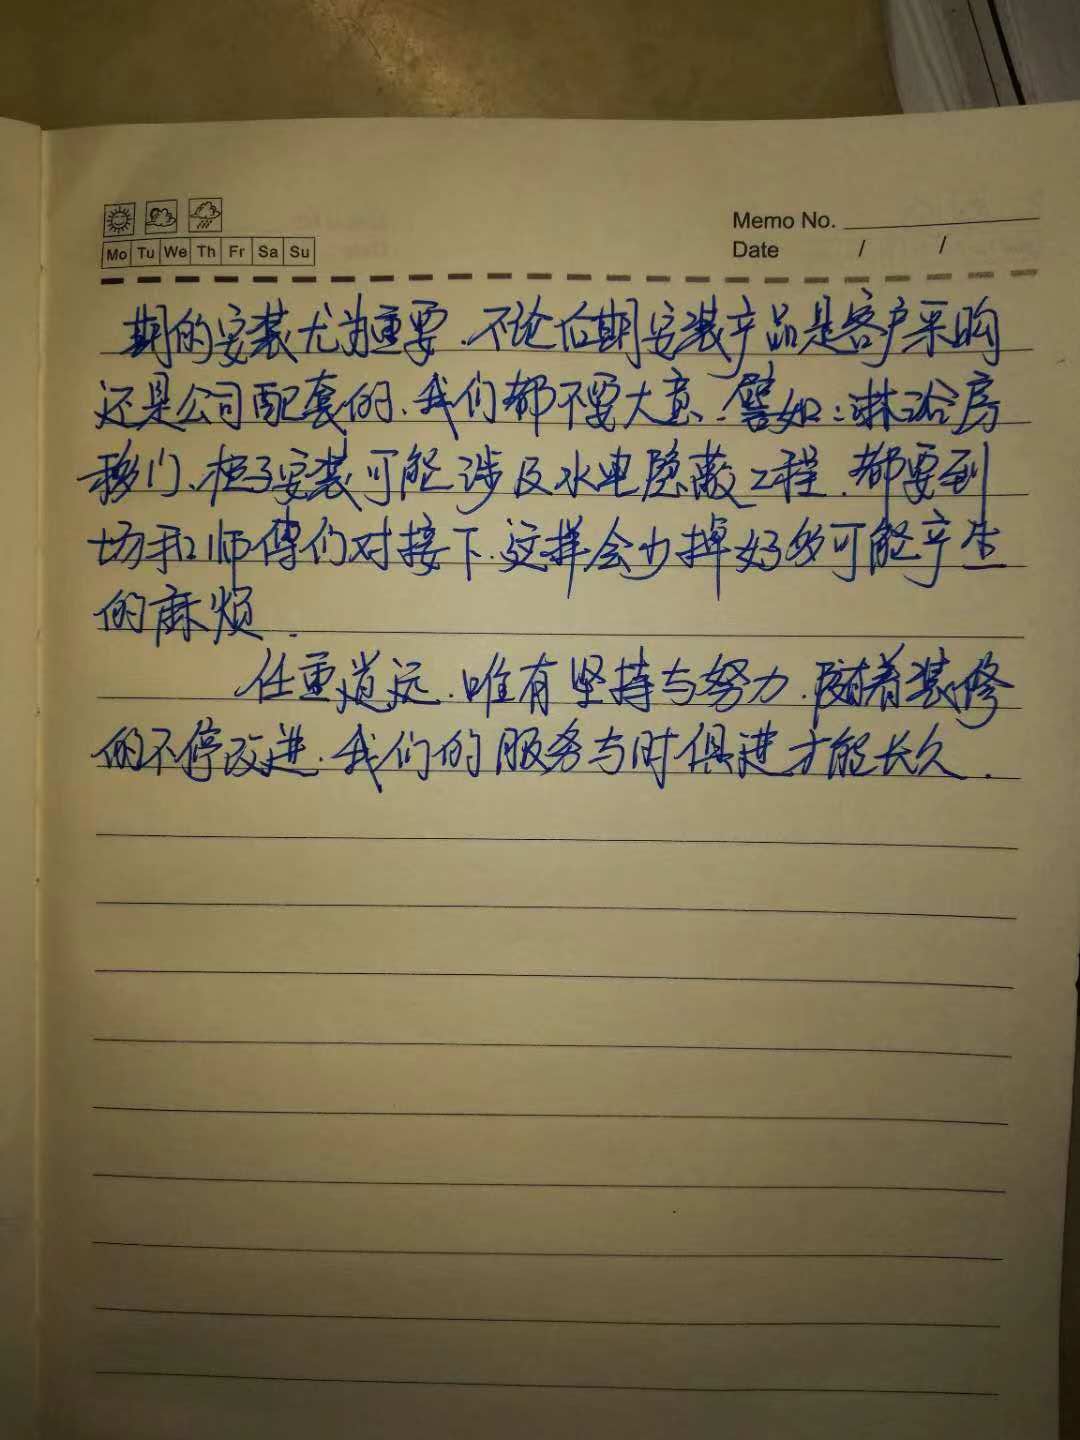 Memo No.
Mo Tu We Th Fr Sa Su
Date / /
期的安装尤为重要.不论后期安装产品是客户采购
还是公司配套的、我们都不要大意.譬如:淋浴房
移门、柜子安装可能涉及水电隐蔽工程.都要到
场和师傅们对接下.这样会少掉好多可能产生
的麻烦.
任重道远.唯有坚持与努力.随着装修
的不停改进.我们的服务与时俱进才能长久.